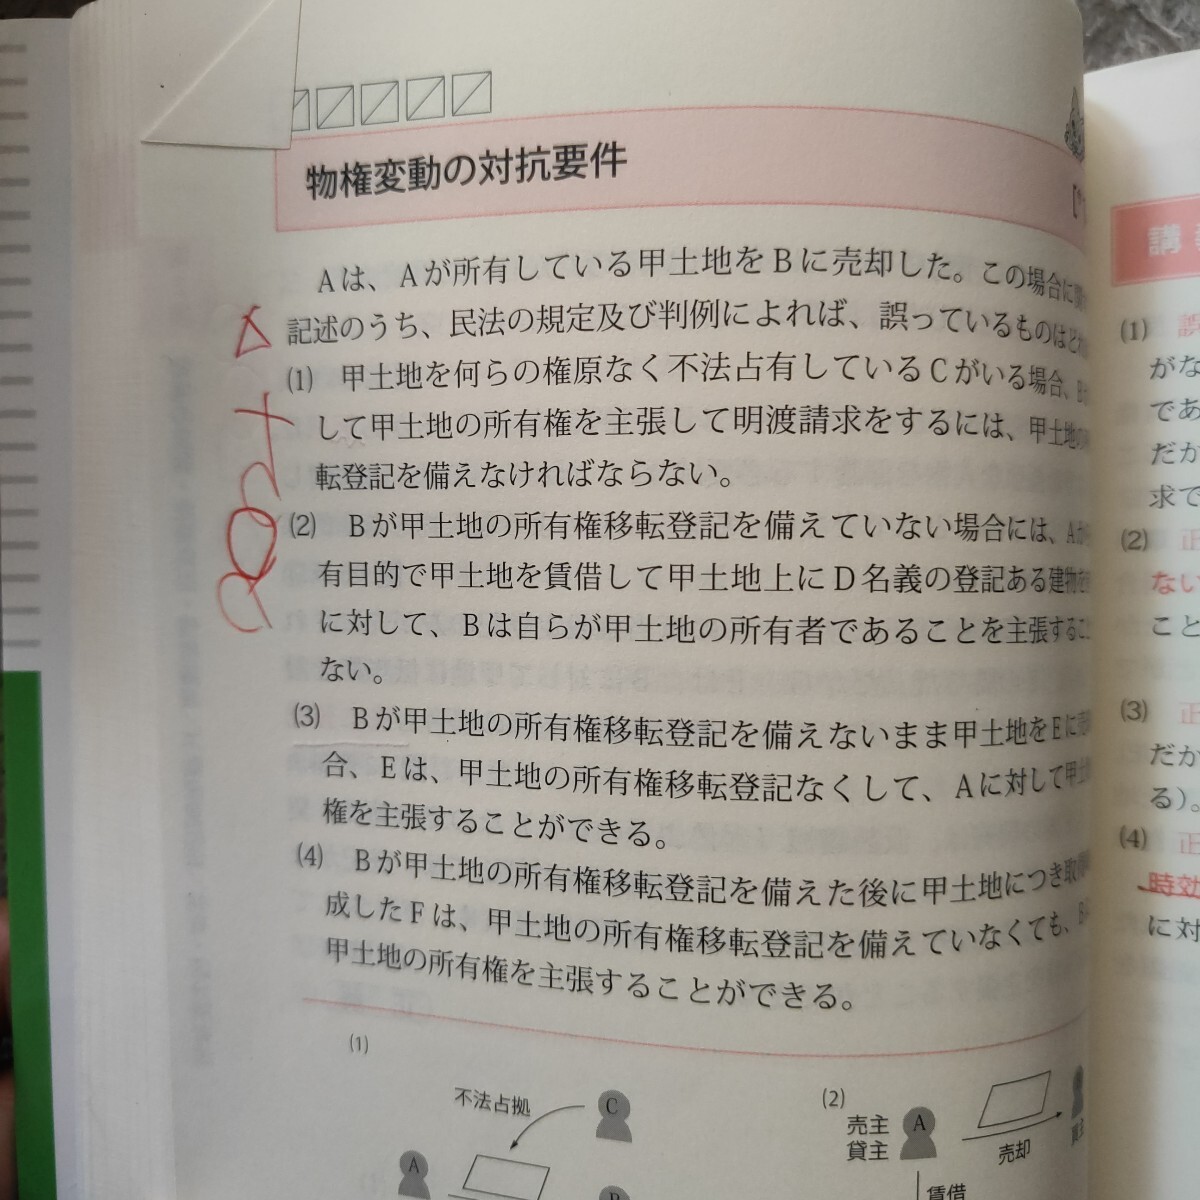 物権変動の対抗要件
Aは、Aが所有している甲土地をBに売却した。この場合に
記述のうち、民法の規定及び判例によれば、誤っているものはど
(1) 甲土地を何らの権原なく不法占有しているCがいる場合、B
して甲土地の所有権を主張して明渡請求をするには、甲土地の
転登記を備えなければならない。
(2) Bが甲土地の所有権移転登記を備えていない場合には、A
有目的で甲土地を賃借して甲土地上にD名義の登記ある建物を
に対して、Bは自らが甲土地の所有者であることを主張するこ
ない。
(3) Bが甲土地の所有権移転登記を備えないまま甲土地をEに
合、Eは、甲土地の所有権移転登記なくして、Aに対して甲
権を主張することができる。
(4) Bが甲土地の所有権移転登記を備えた後に甲土地につき取
成したFは、甲土地の所有権移転登記を備えていなくても、B
甲土地の所有権を主張することができる。
(1)
不法占拠
C
A
B
(2)
売主
貸主
A
売却
賃借
講
(1) 誤
がな
であ
だか
求で
(2) 正
ない
こと
(3) 正
だか
る)。
(4) 正
時効
に対